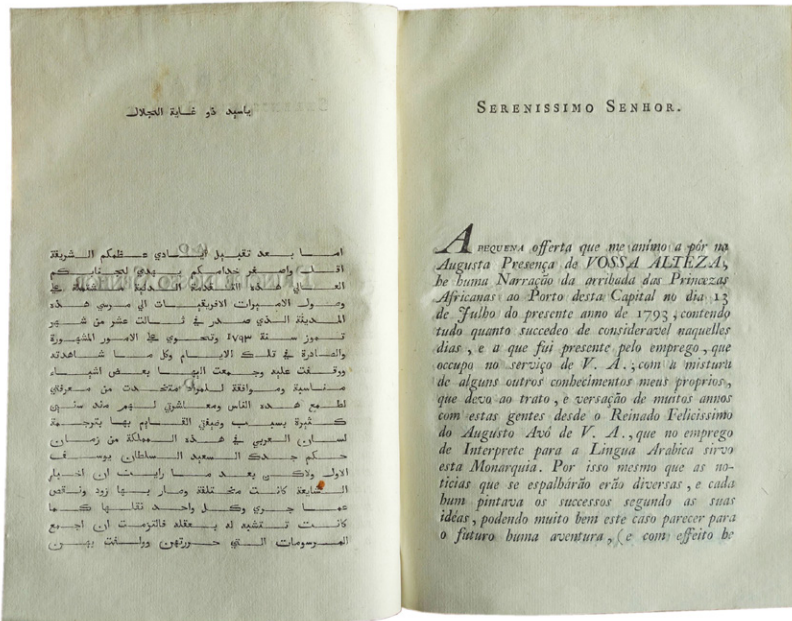 ياسيد ذو غاية الجلال
اما بعد تقبيل ايادي عظمكم الشريفة
اقل واصغر خدامكم يهدي لجنابكم
العالي هذه
وصول الاميرات الافريقيات الي مرسي هذه
المدينة الذي صدر في ثالث عشر من شهر
تموز سنة ١٧٩٣ وتحتوي علي الامور المشهورة
والصادرة في تلك الايام وكل ما شاهدته
ووقفت عليه وجمعت اليها بعض اشياء
مناسبة وموافقة للمواد متخذت من معرفتي
لطمع هذه الناس ومعاشرتي لهم منذ سنين
كثيرة بسبب وضيفتي القايم بها بترجمة
لسان العربي في هذه المملكة من زمان
حكم جدك السعيد السلطان يوسف
الاول ولاكن بعد ما رايت ان اخبار
الشايعة كانت مختلفة وصار بها زود ونقص
عما جري وكل واحد نقالها كما
كانت تتشبه له بعقله فالتزمت ان اجمع
المرسومات التي حورتهن ووافت بهن
SERENISSIMO SENHOR.
A PEQUENA offerta que me animo a pôr na
Augusta Presença de VOSSA ALTEZA,
he huma Narração da arribada das Princezas
Africanas ao Porto desta Capital no dia 13
de Julho do presente anno de 1793, contendo
tudo quanto succedeo de consideravel naquelles
dias, e a que fui presente pelo emprego, que
occupo no serviço de V. A.; com a mistura
de alguns outros conhecimentos meus proprios,
que devo ao trato, e versação de muitos annos
com estas gentes desde o Reinado Felicissimo
do Augusto Avô de V. A., que no emprego
de Interprete para a Lingua Arabica sirvo
esta Monarquia. Por isso mesmo que as no-
ticias que se espalhárão erão diversas, e cada
hum pintava os successos segundo as suas
idéas, podendo muito bem este caso parecer para
o futuro huma aventura, (e com effeito he